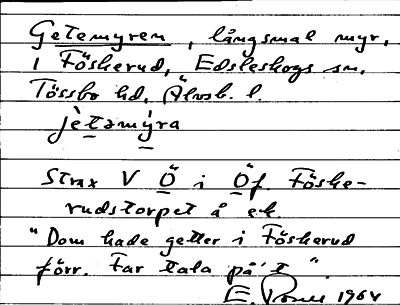 Getemyren, långsmal myr,
i Föskerud, Edsleskogs sn.
Tössbo hd, Älvsb. l.
jètəmy̆ra
Strax V Ö i Öf. Föske-
rudstorpet å ek.
"Dom hade getter i Föskerud
förr. Far tala på't".
E. 1964